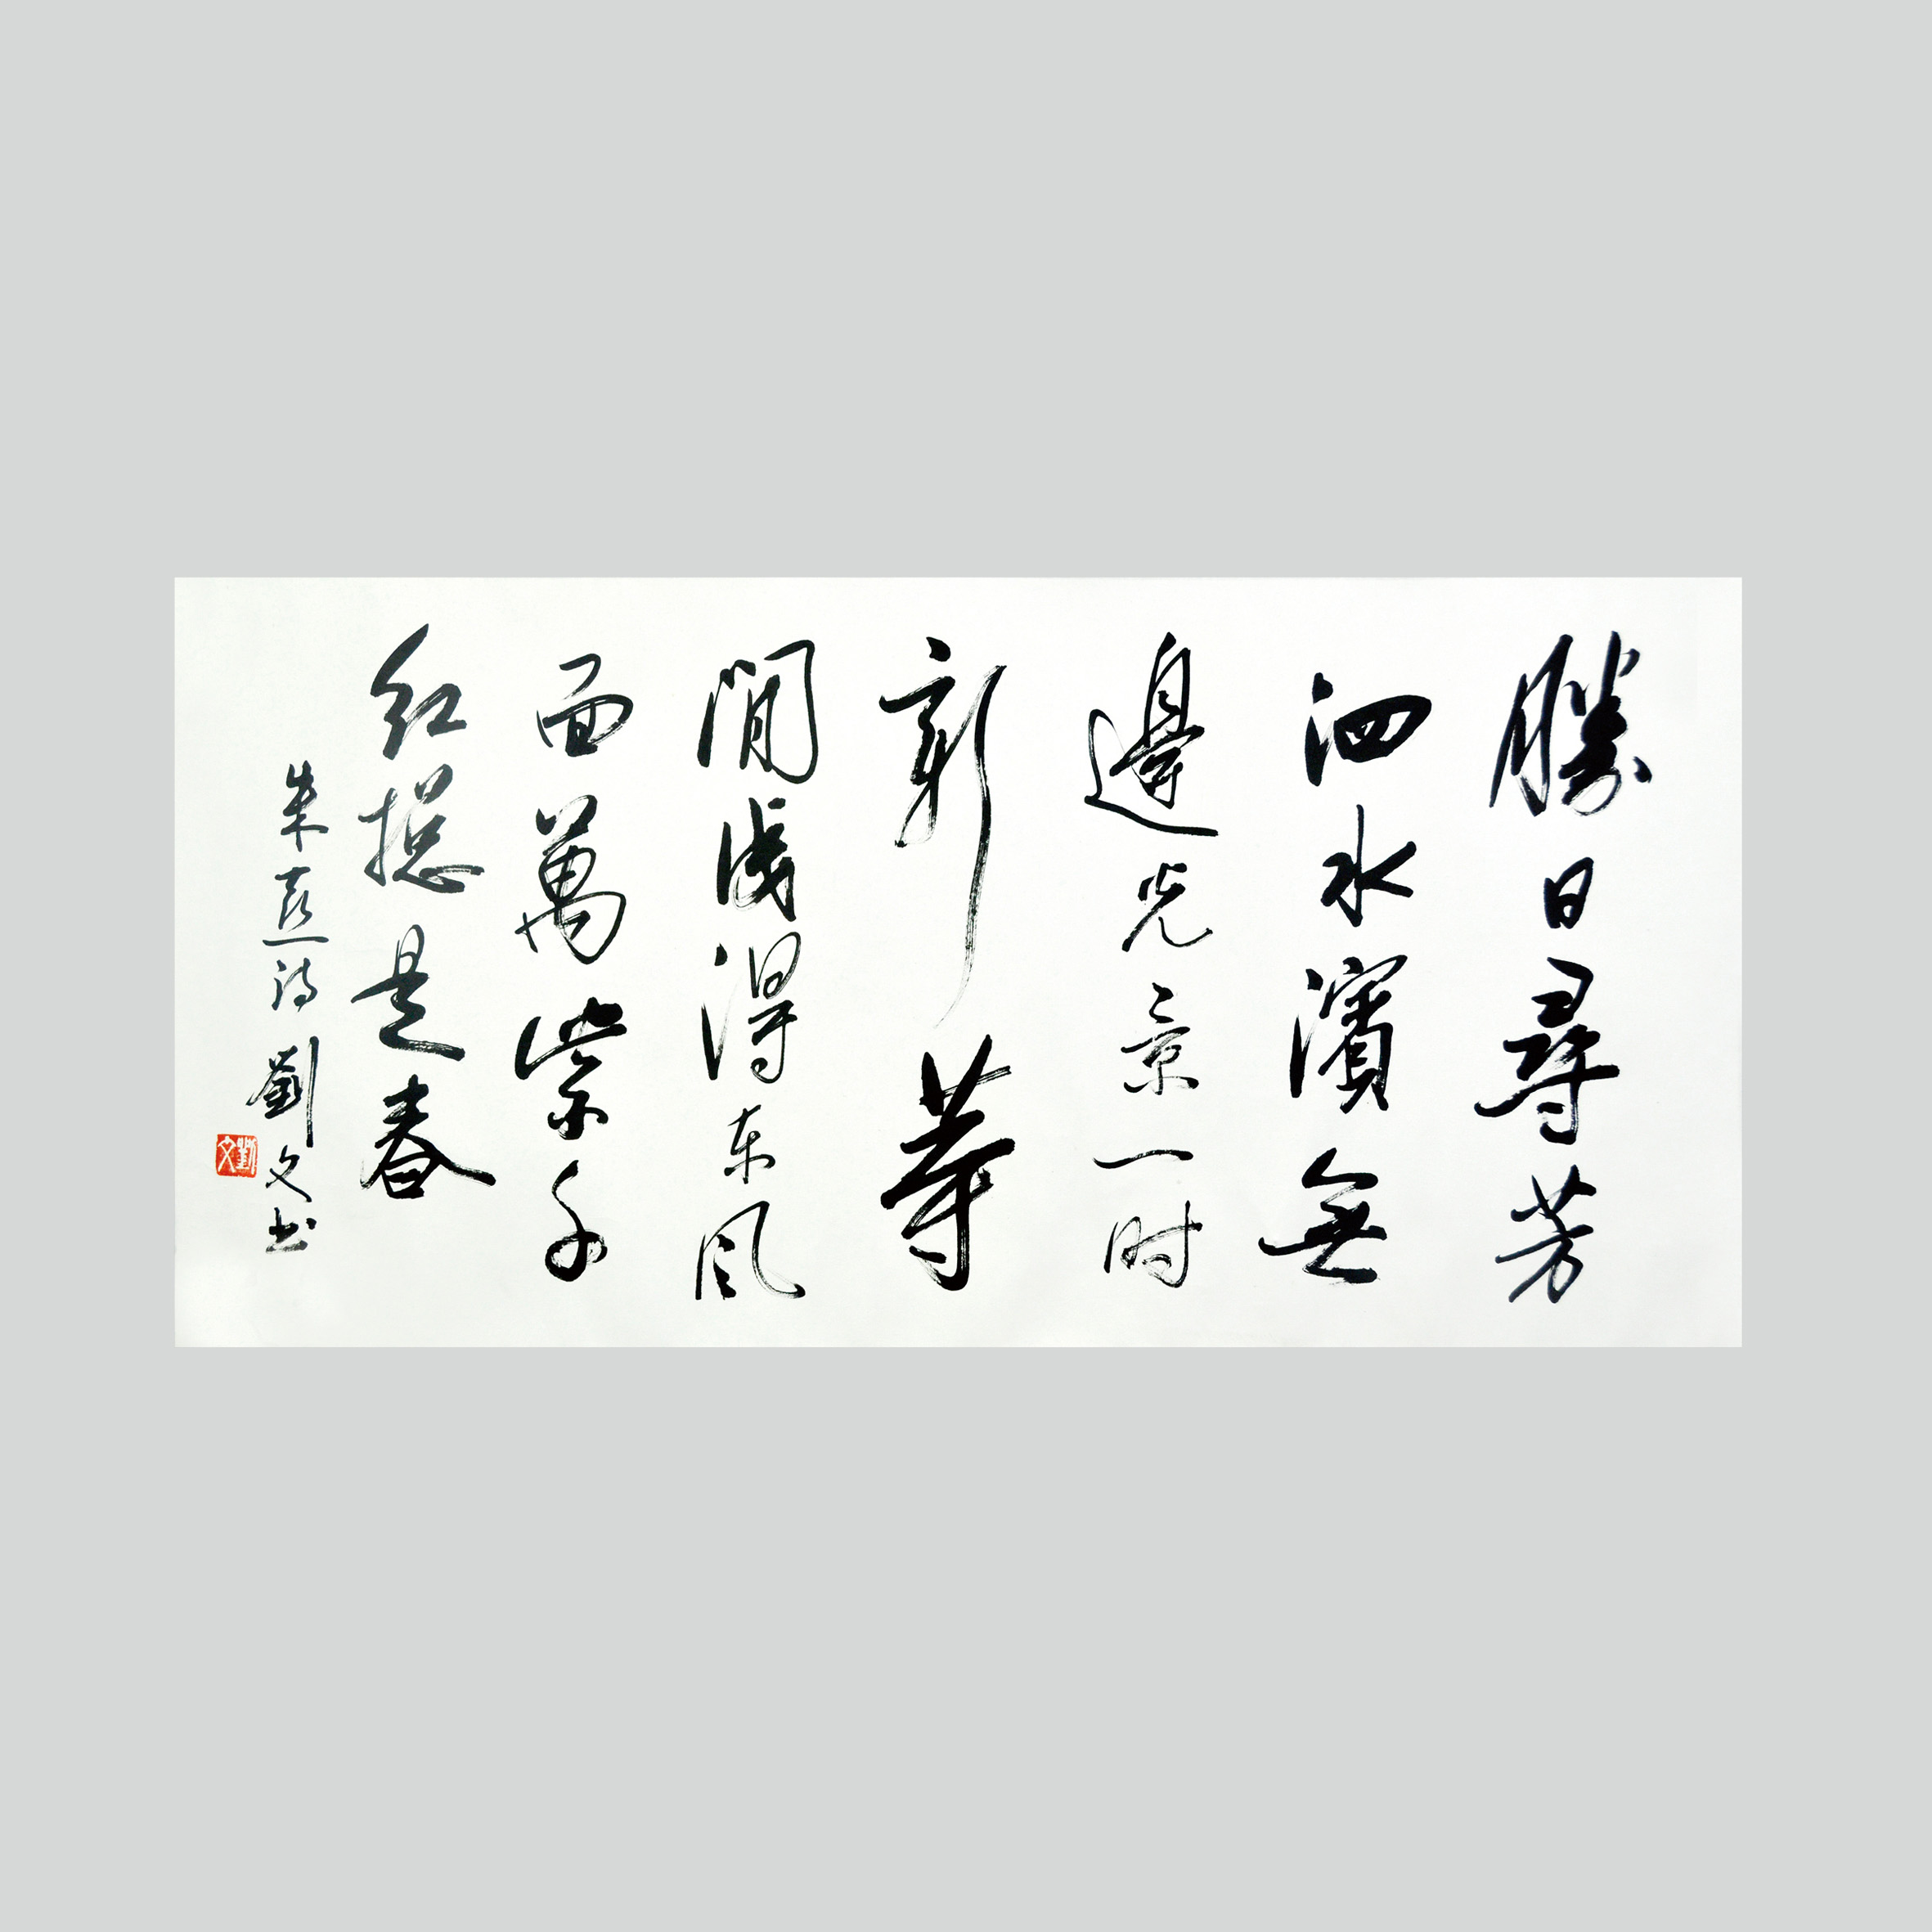 勝日尋芳
泗水濱無
邊光景一时
新等
閒識得东风
面萬紫千
红摠是春
朱熹诗劉文书
劉文